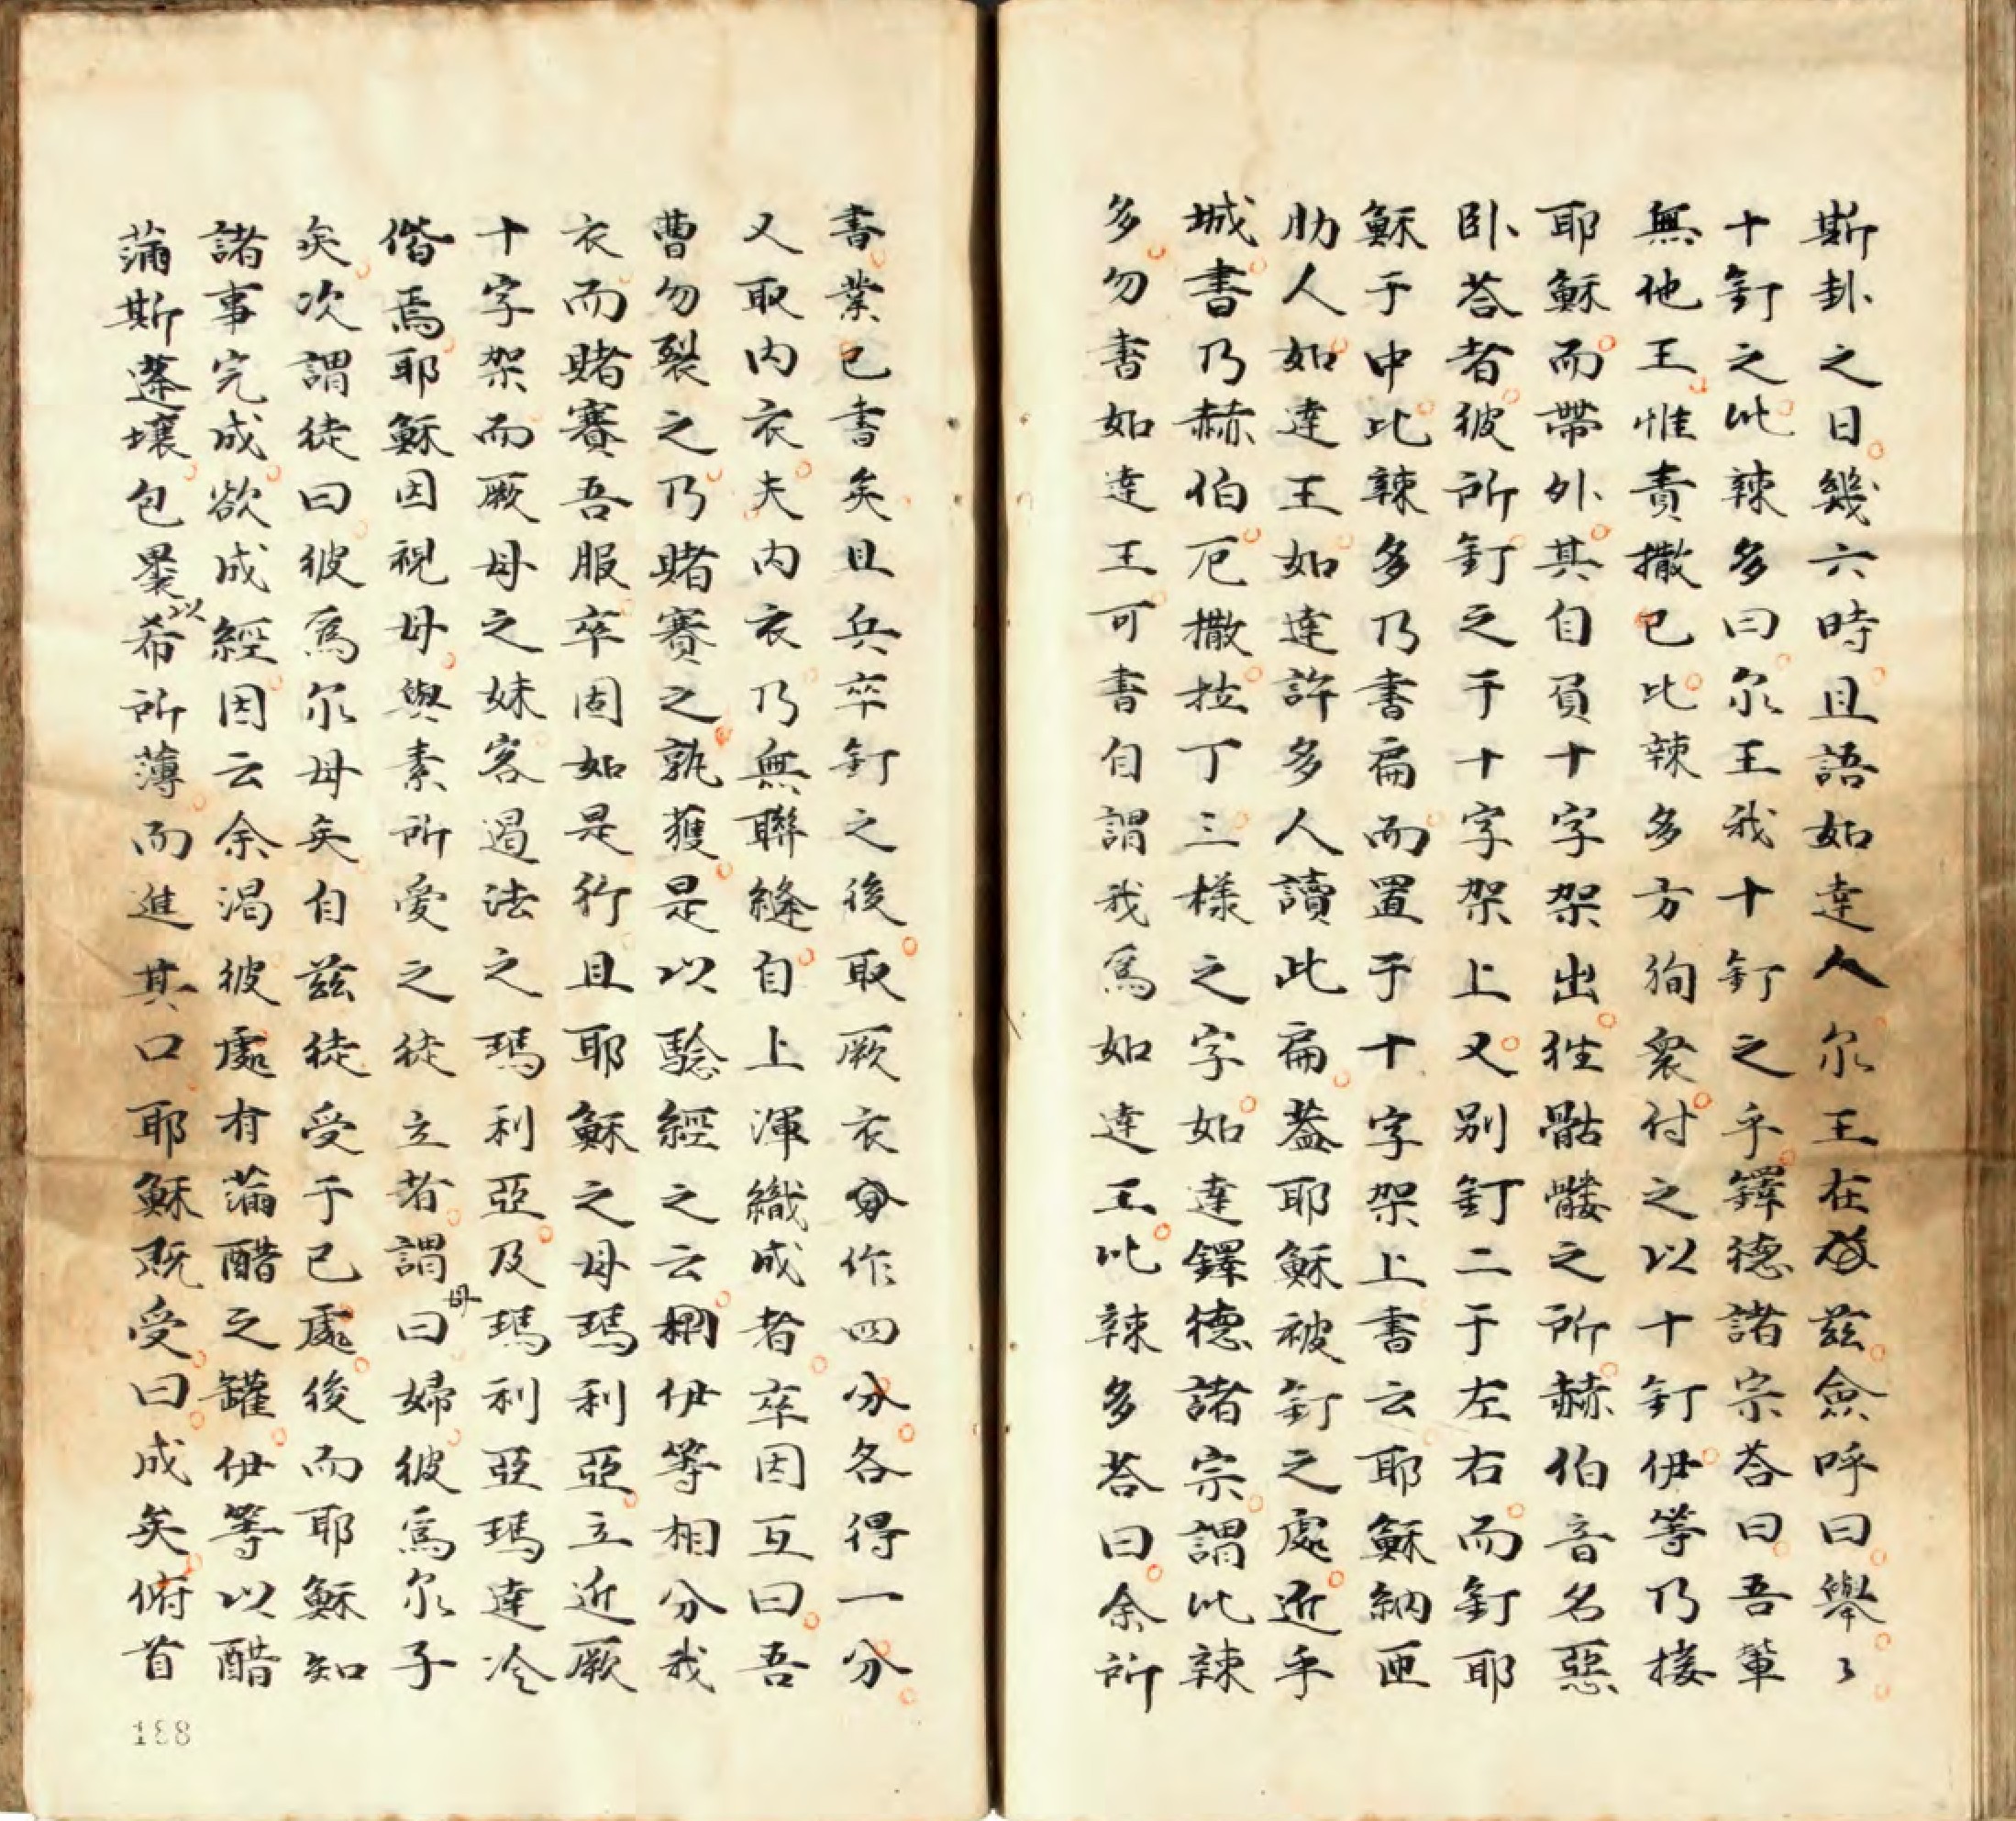 斯卦之日幾六時且語如達人尔王在茲僉呼曰舉〻
十釘之比辣多曰尔王我十釘之乎鐸德諸宗荅曰吾輩
無他王惟責撒巴比辣多方狥衆付之以十釘伊等乃接
耶穌而帶外其自負十字架出徃骷髏之所赫伯音名惡
卧荅者彼所釘之于十字架上又别釘二于左右而釘耶
穌于中比辣多乃書扁而置于十字架上書云耶穌納匝
肋人如達王如達許多人讀此扁葢耶穌被釘之處近乎
城書乃赫伯厄撒拉丁三様之字如達鐸德諸宗謂比辣
多勿書如達王可書自謂我爲如達王比辣多荅曰余所
書業已書矣且兵卒釘之後取厥衣分作四分各得一分
又取内衣夫内衣乃無聯縫自上渾織成者卒因互曰吾
曹勿裂之乃賭賽之孰獲是以驗經之云伊等相分我
衣而賭賽吾服卒固如是行且耶穌之母瑪利亞立近厥
十字架而厥母之妹客遏法之瑪利亞及瑪利亞瑪達冷
偕焉耶穌因視母與素所愛之徒立者謂母曰婦彼爲尔子
矣次謂徒曰彼爲尔母矣自茲徒受于已處後而耶穌知
諸事完成欲成經因云余渴彼處有滿醋之罐伊等以醋
蒲斯蓬壤包裹以希所薄而進其口耶穌既受曰成矣俯首
188